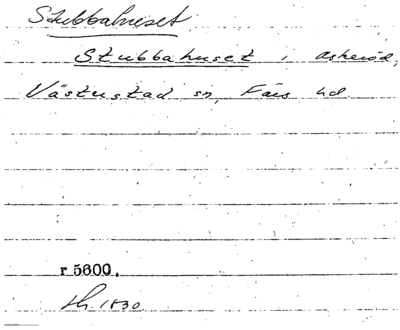 Stubbahuset
Stubbahuset i Askeröd,
Västerstad sn, Färs hd
r 5600.
1830